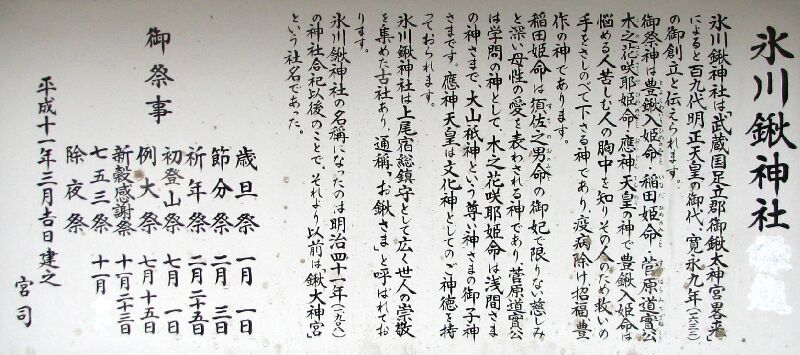 氷川鍬神社
氷川鍬神社は「武蔵国足立郡御鍬太神宮畧来」
によると百九代明正天皇の御代、寛永九年(一六三二)
の御創立と伝えられます。
御祭神は豊鍬入姫命、稲田姫命、菅原道實公
木之花咲耶姫命、應神天皇の神で豊鍬入姫命は
悩める人苦しむ人の胸中を知りその人のため救いの
手をさしのべて下さる神であり、疫病除け招福豊
作の神であります。
稲田姫命は須佐之男命の御妃で限りない慈しみ
と深い母性の愛を表わされる神であり、菅原道實公
は学問の神として、木之花咲耶姫命は浅間さま
の神さまで、大山祇神という尊い神さまの御子神
さまです。應神天皇は文化神としてのご神徳を持
っておられます。
氷川鍬神社は上尾宿総鎮守として広く世人の崇敬
を集めた古社あり、通稱「お鍬さま」と呼ばれてお
ります。
氷川鍬神社の名稱になったのは明治四十一年(一九〇八)
の神社合祀以後のことで、それより以前は「鍬大神宮」
という社名であった。
御祭事
歳旦祭 一月一日
節分祭 二月三日
祈年祭 二月二十五日
初登山祭 七月一日
例大祭 七月十五日
新穀感謝祭 十一月二十三日
七五三祭 十一月
除夜祭
平成十一年三月吉日建之
宮司